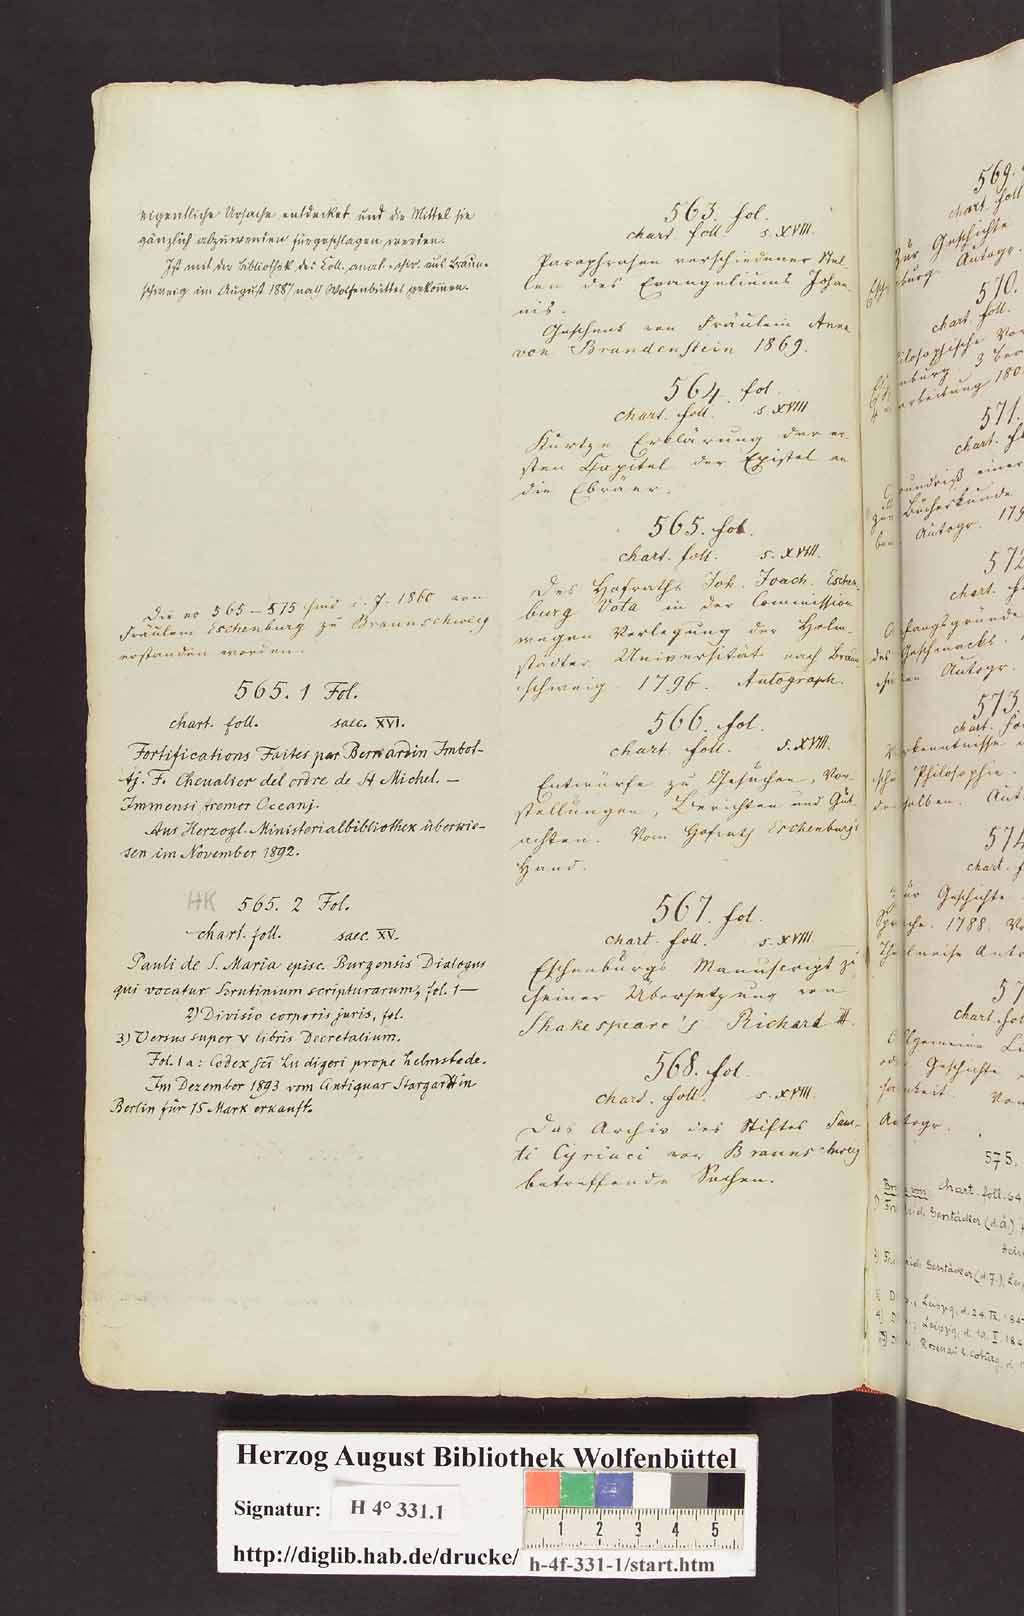 eigentliche Ursache entdecket und die Mittel sie
gänzlich abzuwenden fürgeschlagen werden.
Ist mit der Bibliothek des Coll. anat.-chir. aus Braun-
schweig im August 1887 nach Wolfenbüttel gekommen.
Die no 565–575 sind i. J. 1860 von
Fräulein Eschenburg zu Braunschweig
erstanden worden.
565. 1 Fol.
chart. foll. saec. XVI.
Fortifications Faites par Bernardin Imbot-
tj. F. Chevalier del ordre de St Michel. —
Immensi tremor Occanj.
Aus Herzogl. Ministerialbibliothek überwie-
sen im November 1892.
HK 565. 2 Fol.
chart. foll. saec. XV.
Pauli de S. Maria episc. Burgensis Dialogus
qui vocatur Scrutinium scripturarum, fol. 1—
2) Divisio corporis juris, fol.
3) Versus super V libris Decretalium.
Fol. 1a: Codex sci Ludigeri prope helmstede.
Im Dezember 1893 vom Antiquar Stargardt in
Berlin für 15 Mark erkauft.
563. fol.
chart. foll. s. XVIII.
Paraphrasen verschiedener Stel-
len des Evangeliums Johan-
nis.
Geschenk von Fräulein Anna
von Brandenstein 1869.
564. fol.
chart. foll. s. XVIII
Kurtze Erklärung der er-
sten Capitel der Epistel an
die Ebräer.
565. fol.
chart. foll. s. XVIII.
Des Hofraths Joh. Joach. Eschen-
burg Vota in der Commission
wegen Verlegung der Helm-
städter Universität nach Braun-
schweig. 1796. Autograph.
566. fol.
chart. foll. s. XVIII.
Entwürfe zu Gesuchen, Vor-
stellungen, Berichten und Gut-
achten. Vom Hofrath Eschenburg's
Hand.
567. fol.
chart. foll. s. XVIII.
Eschenburgs Manuscript zu
seiner Übersetzung von
Shakespeare's Richard III.
568. fol.
chart. foll. s. XVIII.
Das Archiv des Stiftes Sanc-
ti Cyriaci vor Braunschweig
betreffende Sachen.
569.
chart. foll
Zur Geschichte
burg. Autogr.
570.
chart. foll.
philosophische
571.
chart.
Bücherkunde
Autogr.
572
chart.
Anfangsgründe
des Geschmacks.
Autogr.
573.
chart. fo
Philosophie.
derselben. Aut
574
chart. f
Zur Geschichte
Sprache. 1788.
Theilweise Auto
57
chart. fol
Allgemeine
oder Geschichte
Autogr.
575.
chart. foll. 64
Gerstäcker (d. Ä.)
Gerstäcker (d. J.),
Leipzig, d. 24. IX. 184
Leipzig, d. 10. I. 184
Rosenau b. Coburg, d.
Herzog August Bibliothek Wolfenbüttel
Signatur: H 4° 331.1
1 2 3 4 5
http://diglib.hab.de/drucke/ h-4f-331-1/start.htm